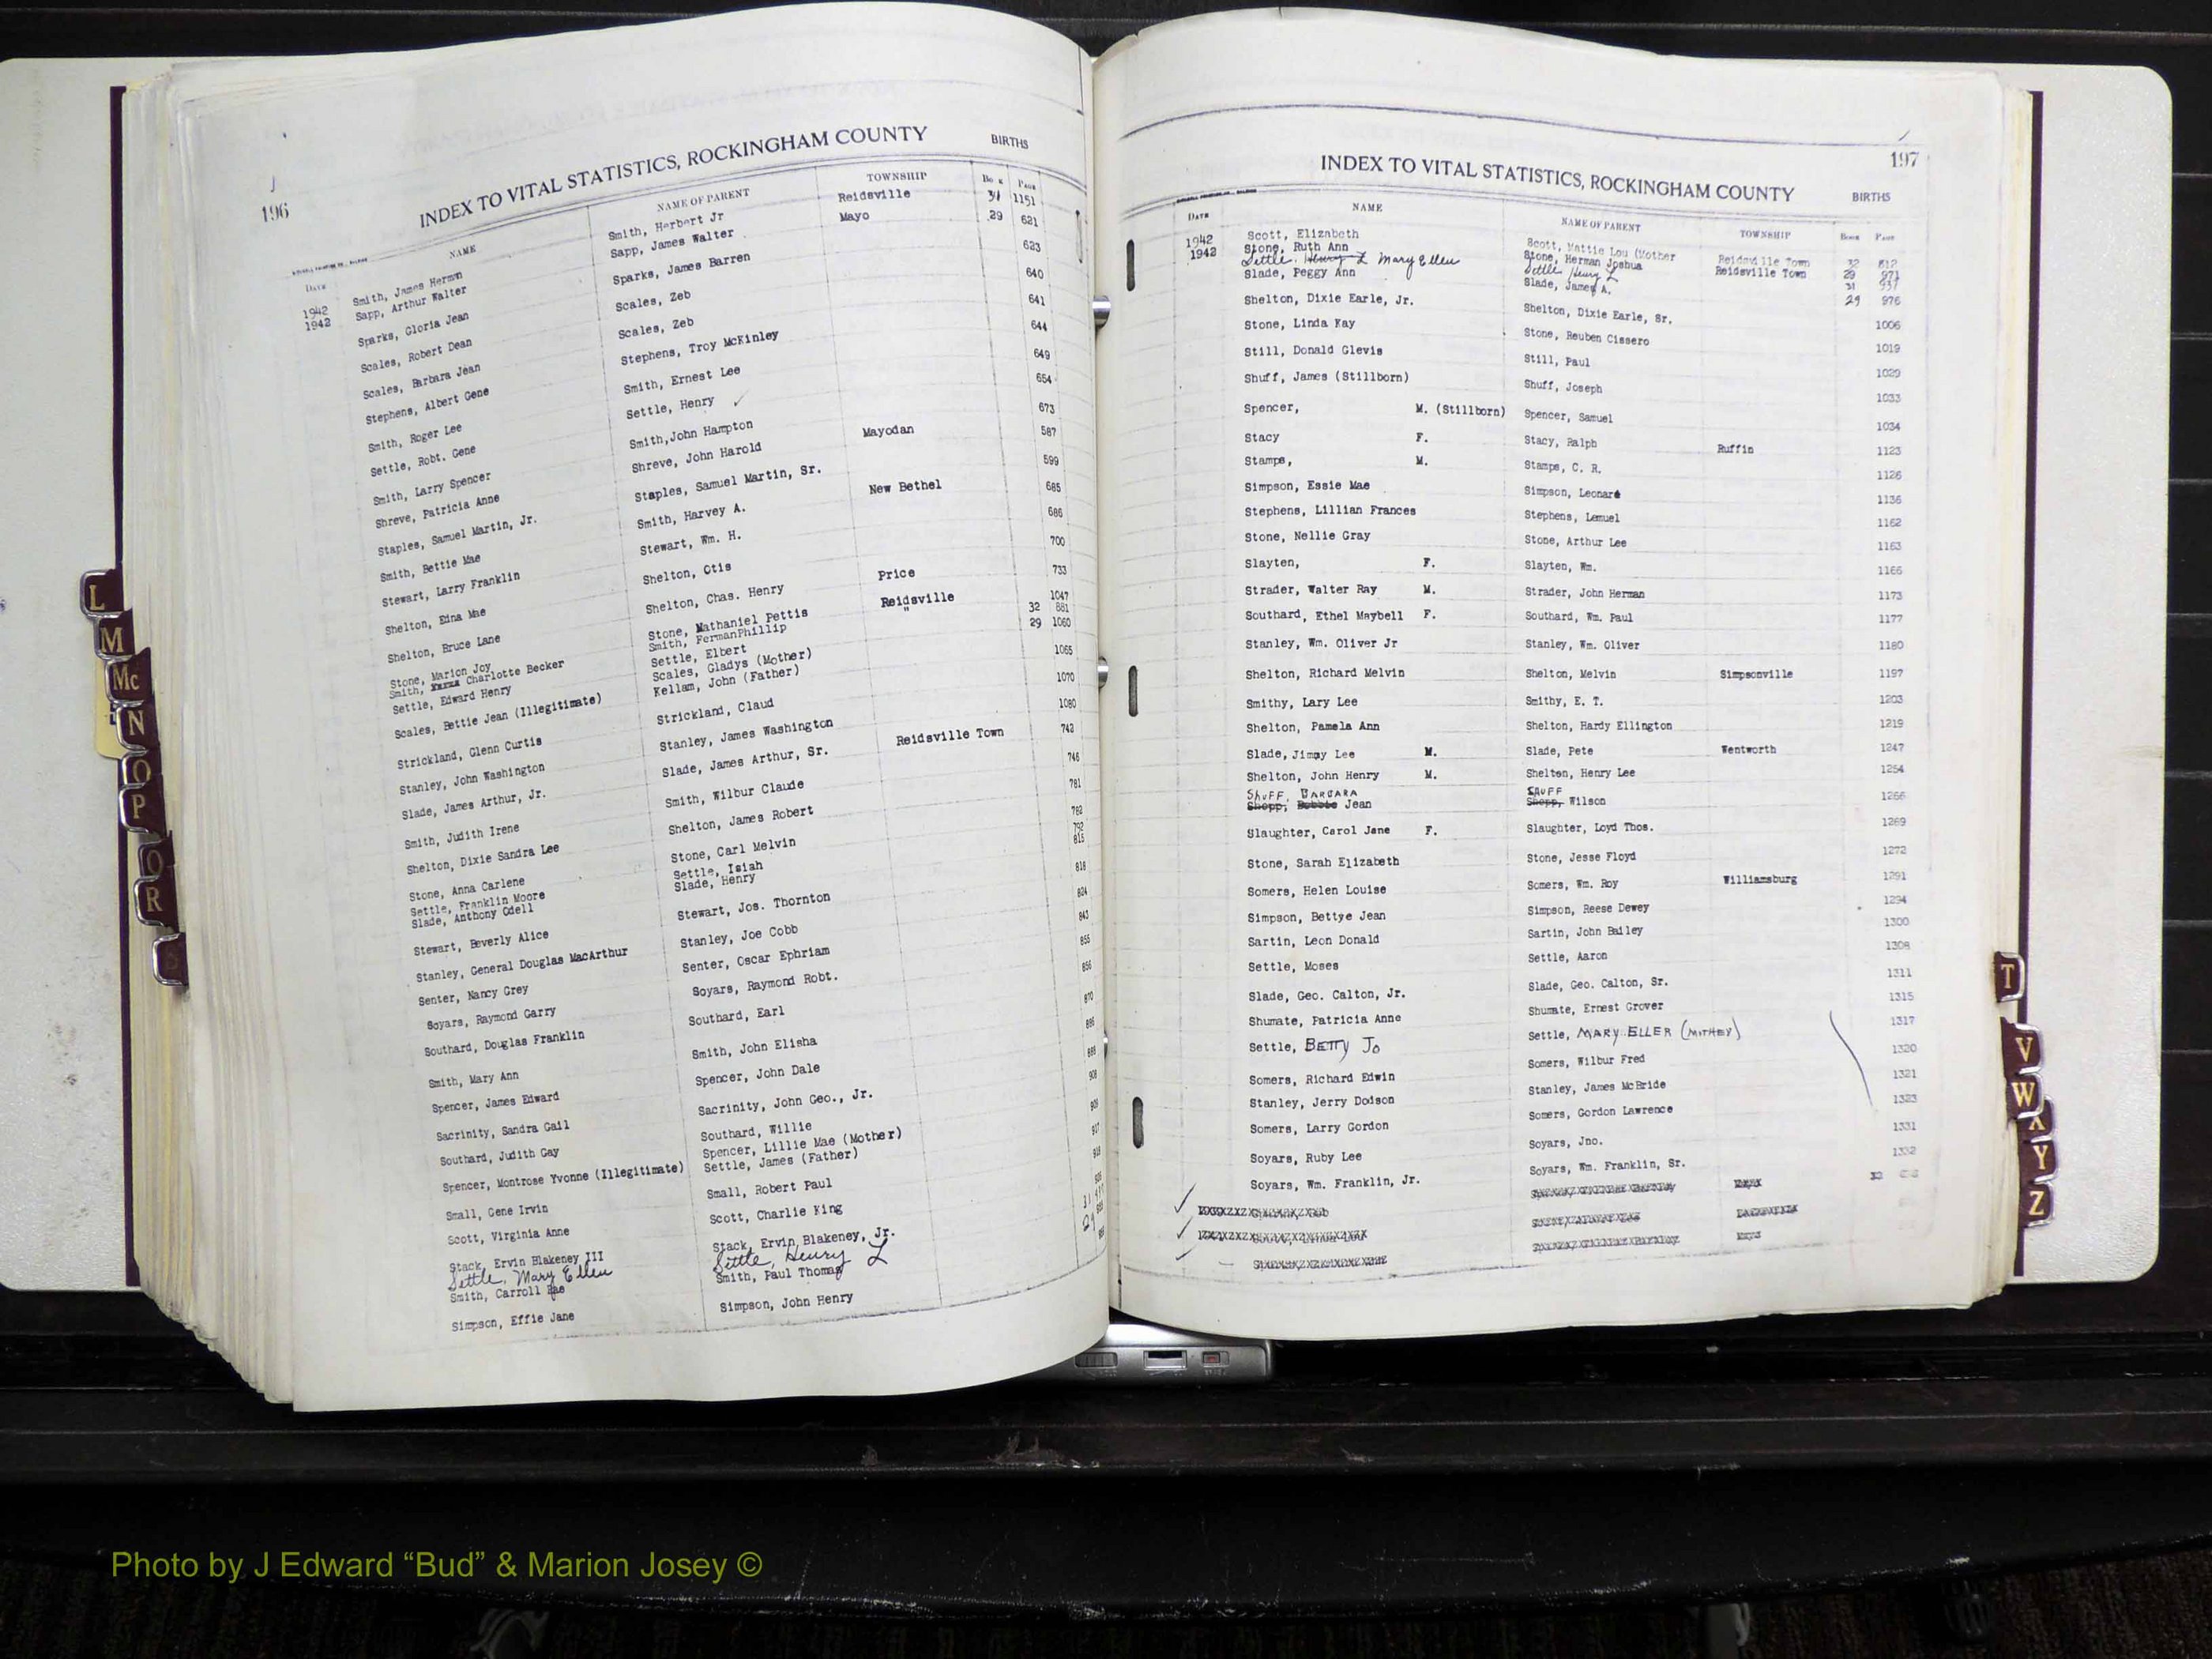 196
INDEX TO VITAL STATISTICS, ROCKINGHAM COUNTY
BIRTHS
DATE NAME NAME OF PARENT TOWNSHIP BOOK PAGE
1942 Smith, James Herman Smith, Herbert Jr Reidsville 31 1151
1942 Sapp, Arthur Walter Sapp, James Walter Mayo 29 621
Sparks, Gloria Jean Sparks, James Barren 623
Scales, Robert Dean Scales, Zeb 640
Scales, Barbara Jean Scales, Zeb 641
Stephens, Albert Gene Stephens, Troy McKinley 644
Smith, Roger Lee Smith, Ernest Lee 649
Settle, Robt. Gene Settle, Henry ✓ 654
Smith, Larry Spencer Smith,John Hampton 673
Shreve, Patricia Anne Shreve, John Harold Mayodan 587
Staples, Samuel Martin, Jr. Staples, Samuel Martin, Sr. 599
Smith, Bettie Mae Smith, Harvey A. New Bethel 685
Stewart, Larry Franklin Stewart, Wm. H. 686
Shelton, Edna Mae Shelton, Otis 700
Shelton, Bruce Lane Shelton, Chas. Henry Price 733
Stone, Marion Joy Stone, Nathaniel Pettis Reidsville 1047
Smith, Charlotte Becker Smith, FermanPhillip " 32 881
Settle, Edward Henry Settle, Elbert 29 1060
Scales, Bettie Jean (Illegitimate) Scales, Gladys (Mother) 1065
Kellam, John (Father)
Strickland, Glenn Curtis Strickland, Claud 1070
Stanley, John Washington Stanley, James Washington 1080
Slade, James Arthur, Jr. Slade, James Arthur, Sr. Reidsville Town 742
Smith, Judith Irene Smith, Wilbur Claude 746
Shelton, Dixie Sandra Lee Shelton, James Robert 781
Stone, Anna Carlene Stone, Carl Melvin 782
Settle, Franklin Moore Settle, Isiah 792
Slade, Anthony Odell Slade, Henry 815
Stewart, Beverly Alice Stewart, Jos. Thornton 818
Stanley, General Douglas MacArthur Stanley, Joe Cobb 824
Senter, Nancy Grey Senter, Oscar Ephriam 843
Soyars, Raymond Garry Soyars, Raymond Robt. 855
Southard, Douglas Franklin Southard, Earl 856
Smith, Mary Ann Smith, John Elisha 870
Spencer, James Edward Spencer, John Dale
Sacrinity, Sandra Gail Sacrinity, John Geo., Jr.
Southard, Judith Gay Southard, Willie
Spencer, Montrose Yvonne (Illegitimate) Spencer, Lillie Mae (Mother)
Settle, James (Father)
Small, Gene Irvin Small, Robert Paul
Scott, Virginia Anne Scott, Charlie King
Stack, Ervin Blakeney III Stack, Ervin Blakeney, Jr.
Settle, Mary Ellen Settle, Henry L
Smith, Carroll Rae Smith, Paul Thomas
Simpson, Effie Jane Simpson, John Henry
197
INDEX TO VITAL STATISTICS, ROCKINGHAM COUNTY
BIRTHS
DATE NAME NAME OF PARENT TOWNSHIP BOOK PAGE
1942 Scott, Elizabeth Scott, Mattie Lou (Mother Reidsville Town 32 812
1942 Stone, Ruth Ann Stone, Herman Joshua Reidsville Town 29 971
Settle, Henry L Mary Ellen Settle Henry L 31 937
Slade, Peggy Ann Slade, James A. 29 976
Shelton, Dixie Earle, Jr. Shelton, Dixie Earle, Sr. 1006
Stone, Linda Kay Stone, Reuben Cissero 1019
Still, Donald Glevis Still, Paul 1029
Shuff, James (Stillborn) Shuff, Joseph 1033
Spencer, M. (Stillborn) Spencer, Samuel 1034
Stacy F. Stacy, Ralph Ruffin 1123
Stamps, M. Stamps, C. R. 1126
Simpson, Essie Mae Simpson, Leonard 1136
Stephens, Lillian Frances Stephens, Lemuel 1162
Stone, Nellie Gray Stone, Arthur Lee 1163
Slayten, F. Slayten, Wm. 1166
Strader, Walter Ray M. Strader, John Herman 1173
Southard, Ethel Maybell F. Southard, Wm. Paul 1177
Stanley, Wm. Oliver Jr Stanley, Wm. Oliver 1180
Shelton, Richard Melvin Shelton, Melvin Simpsonville 1197
Smithy, Lary Lee Smithy, E. T. 1203
Shelton, Pamela Ann Shelton, Hardy Ellington 1219
Slade, Jimmy Lee M. Slade, Pete Wentworth 1247
Shelton, John Henry M. Shelton, Henry Lee 1254
SHUFF, BARBARA SHUFF
Shopp, Bobbie Jean Shopp, Wilson 1266
Slaughter, Carol Jane F. Slaughter, Loyd Thos. 1269
Stone, Sarah Elizabeth Stone, Jesse Floyd 1272
Somers, Helen Louise Somers, Wm. Roy Williamsburg 1291
Simpson, Bettye Jean Simpson, Reese Dewey 1294
Sartin, Leon Donald Sartin, John Bailey 1300
Settle, Moses Settle, Aaron 1308
Slade, Geo. Calton, Jr. Slade, Geo. Calton, Sr. 1311
Shumate, Patricia Anne Shumate, Ernest Grover 1315
Settle, BETTY JO Settle, MARY ELLER (MOTHER) 1317
Somers, Richard Edwin Somers, Wilbur Fred 1320
Stanley, Jerry Dodson Stanley, James McBride 1321
Somers, Larry Gordon Somers, Gordon Lawrence 1323
Soyars, Ruby Lee Soyars, Jno. 1331
Soyars, Wm. Franklin, Jr. Soyars, Wm. Franklin, Sr. 1332
L
M
Mc
N
O
P
Q
R
S
T
V
W
X
Y
Z
Photo by J Edward “Bud” & Marion Josey ©